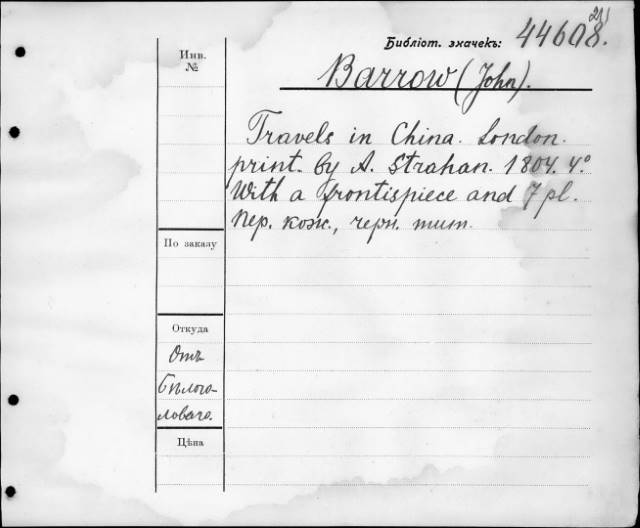 Библіот. значекъ: 44608.
Инв.
№
Barrow (John).
Travels in China. London.
print. by A. Strahan. 1804. 4º
With a frontispiece and 7 pl.
Пер. кож., черн. тит.
По заказу
Откуда
Отъ
Бѣлого-
ловаго.
Цѣна